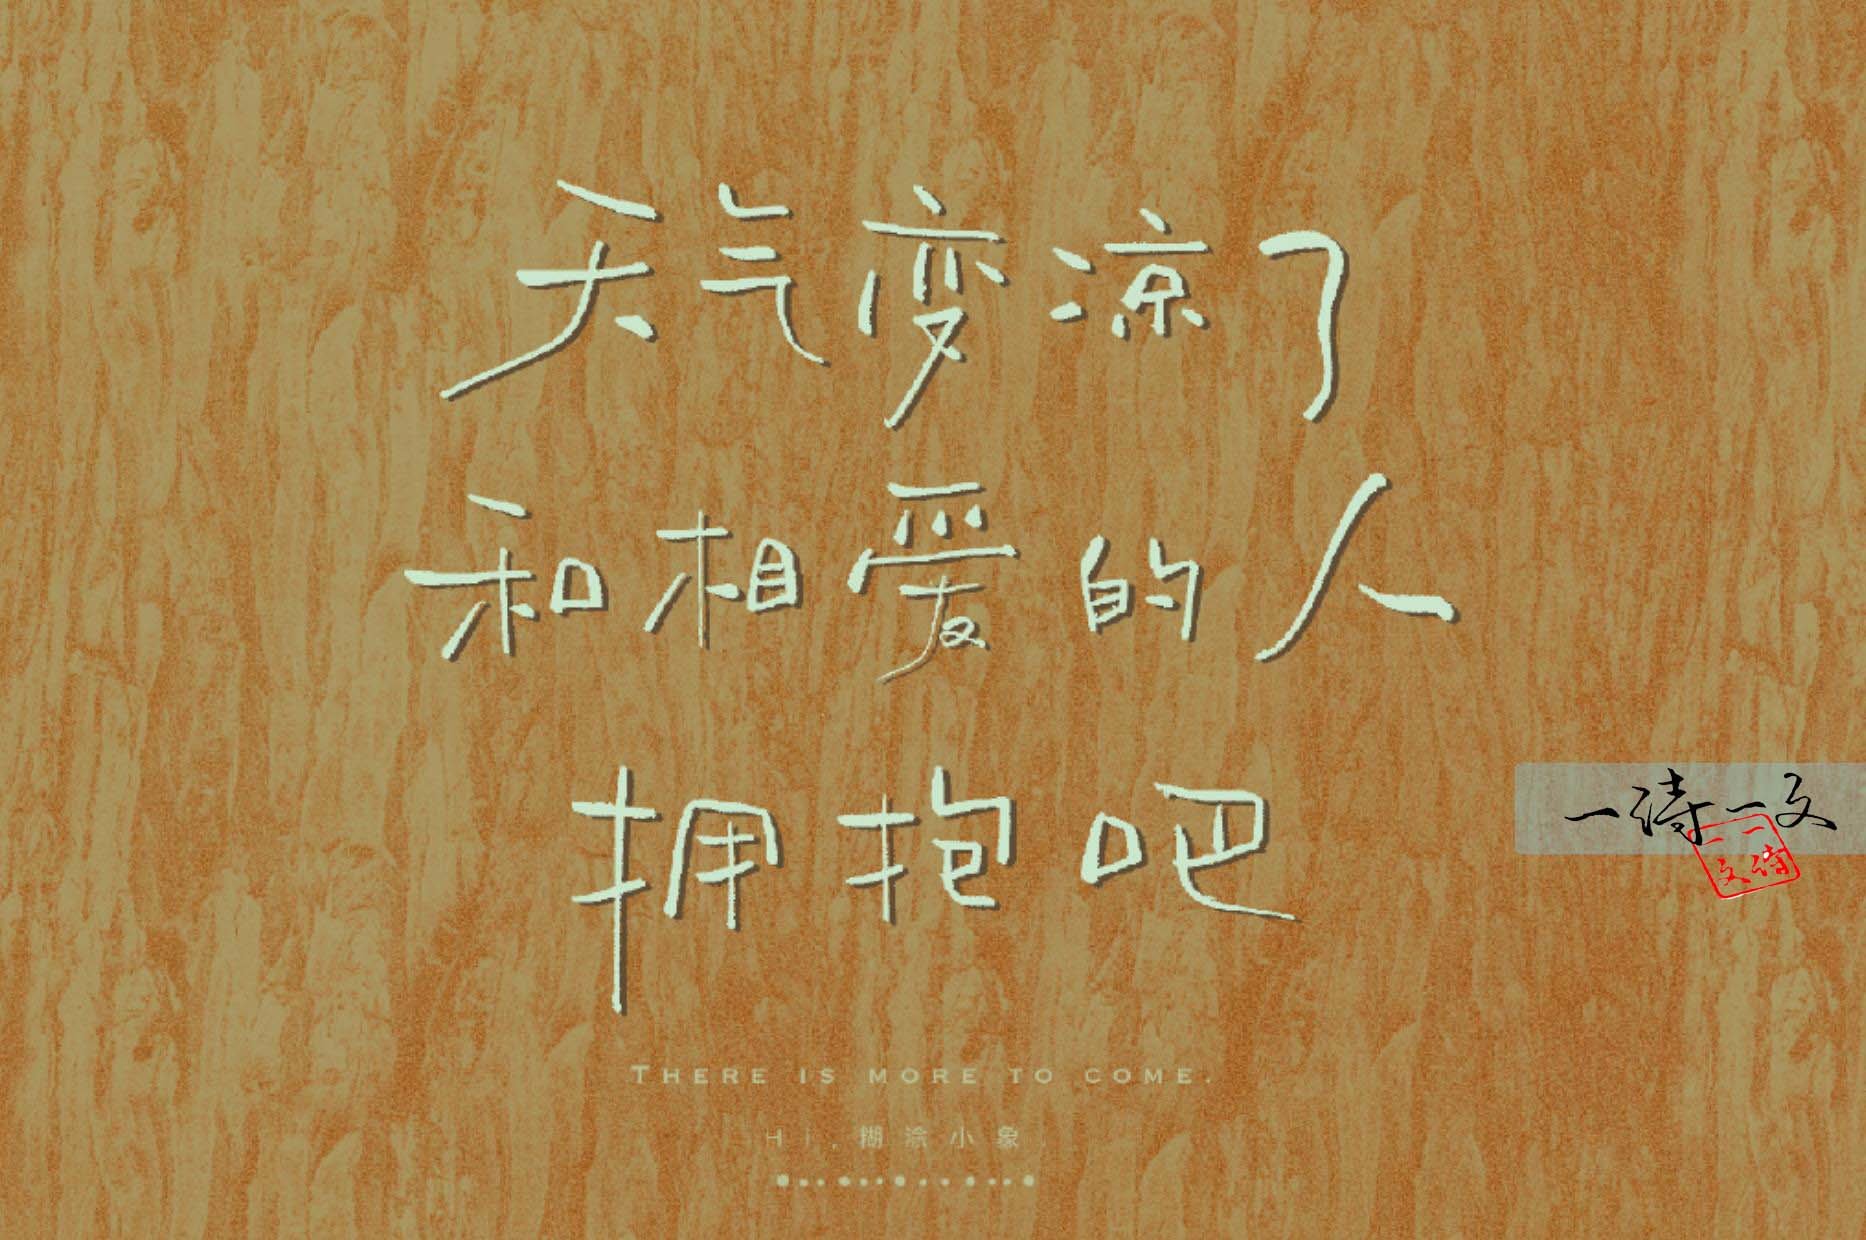 天气变凉了
和相爱的人
拥抱吧
一诗一文
一诗
一文
THERE IS MORE TO COME.
Hi,糊涂小象